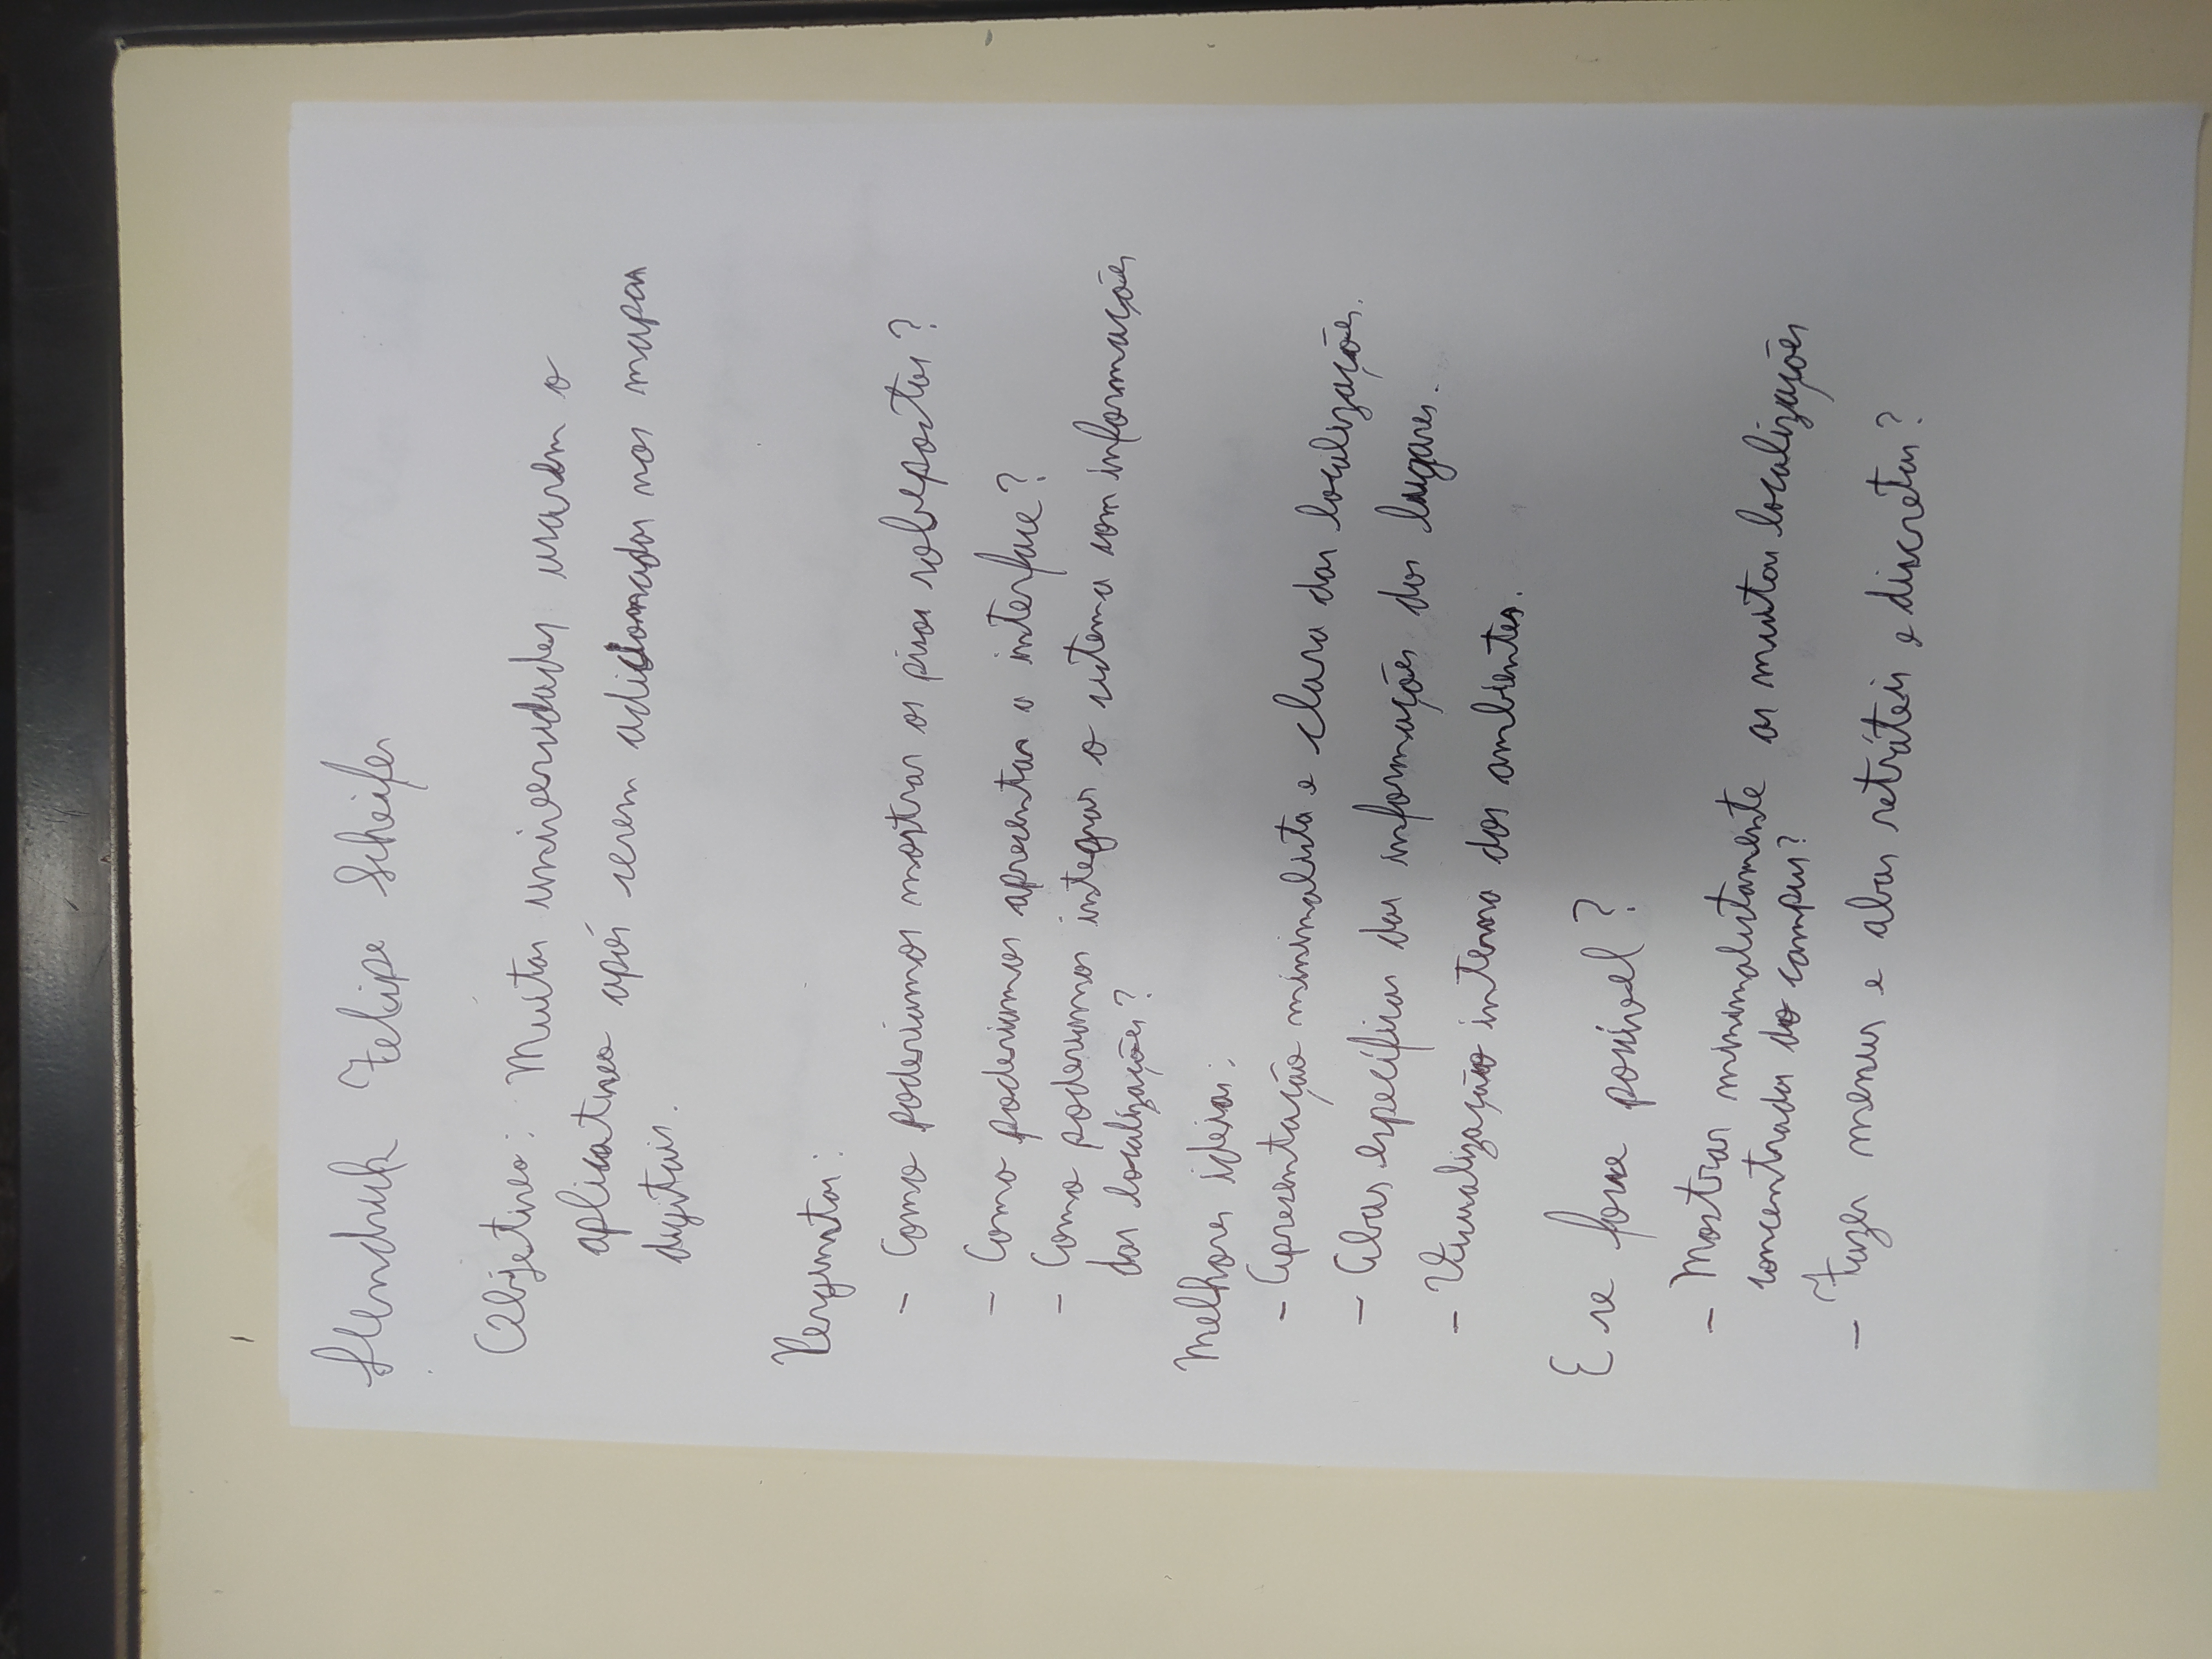 Hendrick Felipe Scheifer
Objetivo: Muitas universidades usarem o
aplicativo após serem adicionadas nos mapas
digitais.
Perguntas:
- Como poderiamos mostrar os pisos sobepostos?
- Como poderiamos apresentar a interface?
- Como poderiamos integrar o sistema com informações
das localizações?
Melhores ideias:
- Apresentação minimalista e clara das localizações.
- Abas específicas das informações dos lugares.
- Visualização interna dos ambientes.
E se fosse possível?
- Mostrar minimalistamente as muitas localizações
concentradas do campus?
- Fazer menus e abas retráteis e discretas?